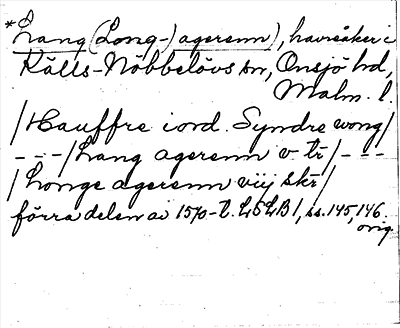 *Lang (Long-) agerenn), havreåker i
Källs-Nöbbelövs sn, Onsjö hd,
Malm. l.
/Hauffre iord. Syndre wong/
---/Lang agerenn v tr/---
/Longe agerenn viij skr/
förra delen av 1570-t. LSLB 1, ss. 145, 146.
orig